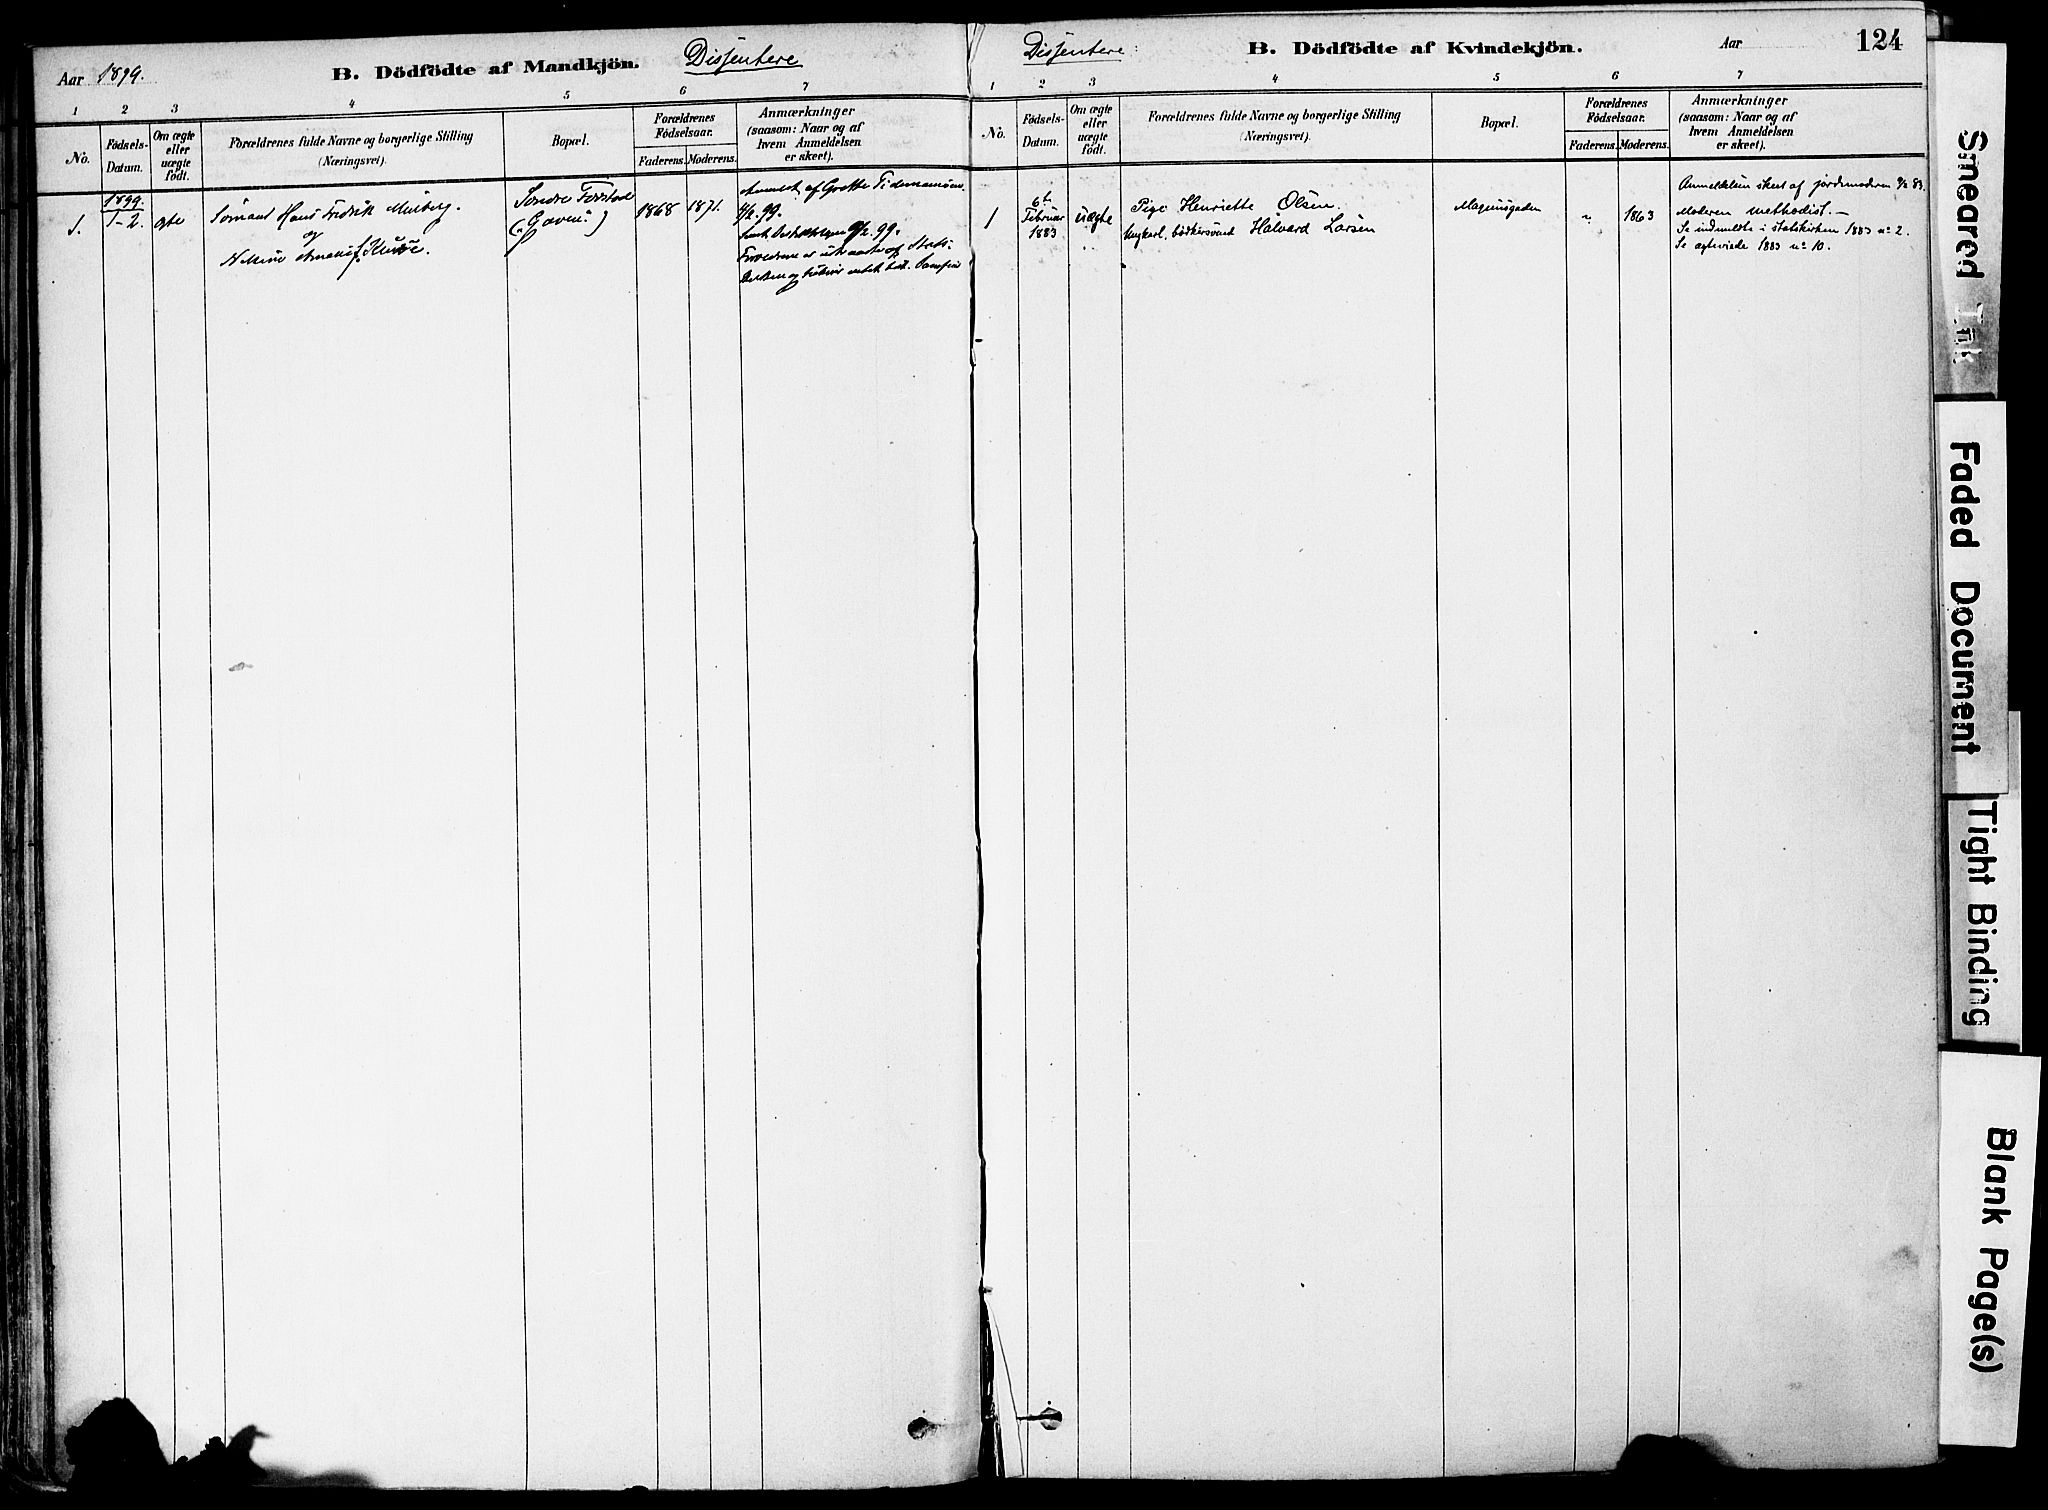 Aar 1899.
B. Dödfödte af Mandkjön.
Dissentere
1 2 3 4 5 6 7
No.
Fødsels-
Datum.
Om ægte
eller
uægte
födt.
Forældrenes fulde Navne og borgerlige Stilling
(Næringsvei).
Bopæl.
Forældrenes
Födselsaar.
Faderens. Moderens.
Anmærkninger
(saasom: Naar og af
hvem Anmeldelsen
er skeet).
1.
1899.
1-2.
ægte
Sømand Hans Fredrik Mulberg.
og
Søndre
1868
1871.
Anmeldt af Grethe Tidemannsen
4/2. 99.
99.
Forældrene er
og
Dissentere
B. Dödfödte af Kvindekjön.
Aar
124
1 2 3 4 5 6 7
No.
Fødsels-
Datum.
Om ægte
eller
uægte
födt.
Forældrenes fulde Navne og borgerlige Stilling
(Næringsvei).
Bopæl.
Forældrenes
Födselsaar.
Faderens. Moderens.
Anmærkninger
(saasom: Naar og af
hvem Anmeldelsen
er skeet).
1
6te
Februar
1883
uægte
Pige Henriette Olsen.
Ungkarl, bødkersvend Halvard Larsen
Magnusgaden
"
1863
Anmeldelsen skeet af jordemoderen 9/2 83.
Moderen methodist.—
Se indmeldte i statskirken 1883 no 2.
Se ægteviede 1883 no 10.
Smeared Ink
Faded Document
Tight Binding
Blank Page(s)